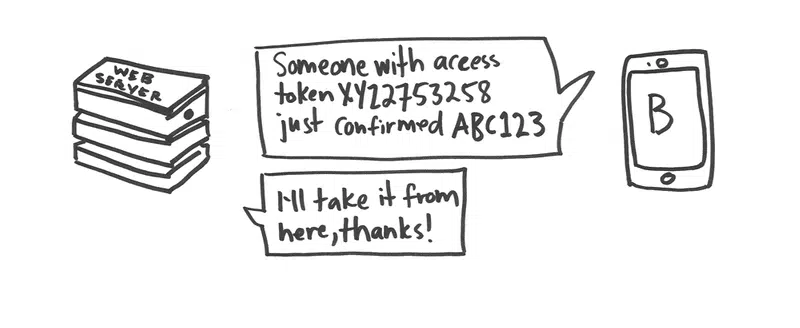 WEB
SERVER
Someone with access
token XY12753258
just confirmed ABC123
I'll take it from
here, thanks!
B